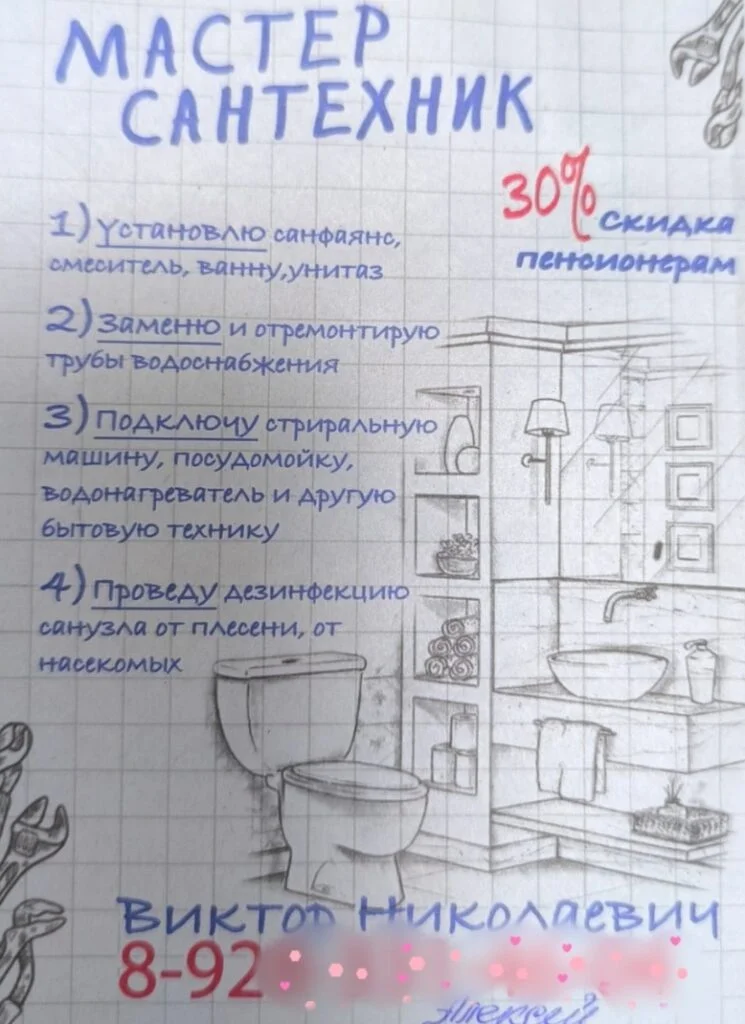 МАСТЕР
САНТЕХНИК
30% скидка
пенсионерам
1) Установлю санфаянс,
смеситель, ванну,унитаз
2) Заменю и отремонтирую
трубы водоснабжения
3) Подключу стриральную
машину, посудомойку,
водонагреватель и другую
бытовую технику
4) Проведу дезинфекцию
санузла от плесени, от
насекомых
Виктор Николаевич
8-92
Алексей